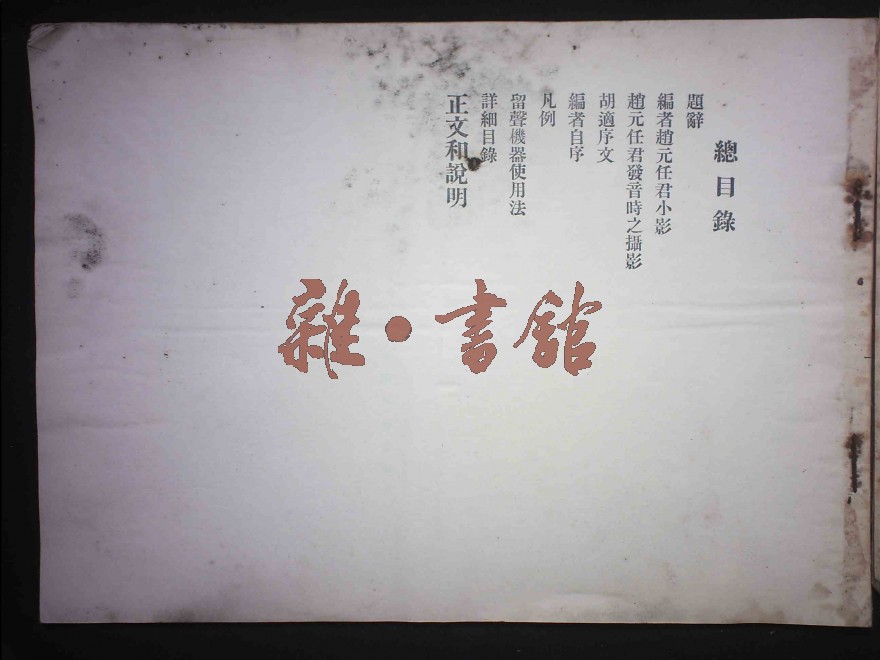 總目錄
題辭
編者趙元任君小影
趙元任君發音時之攝影
胡適序文
編者自序
凡例
留聲機器使用法
詳細目錄
正文和說明
雜·書館